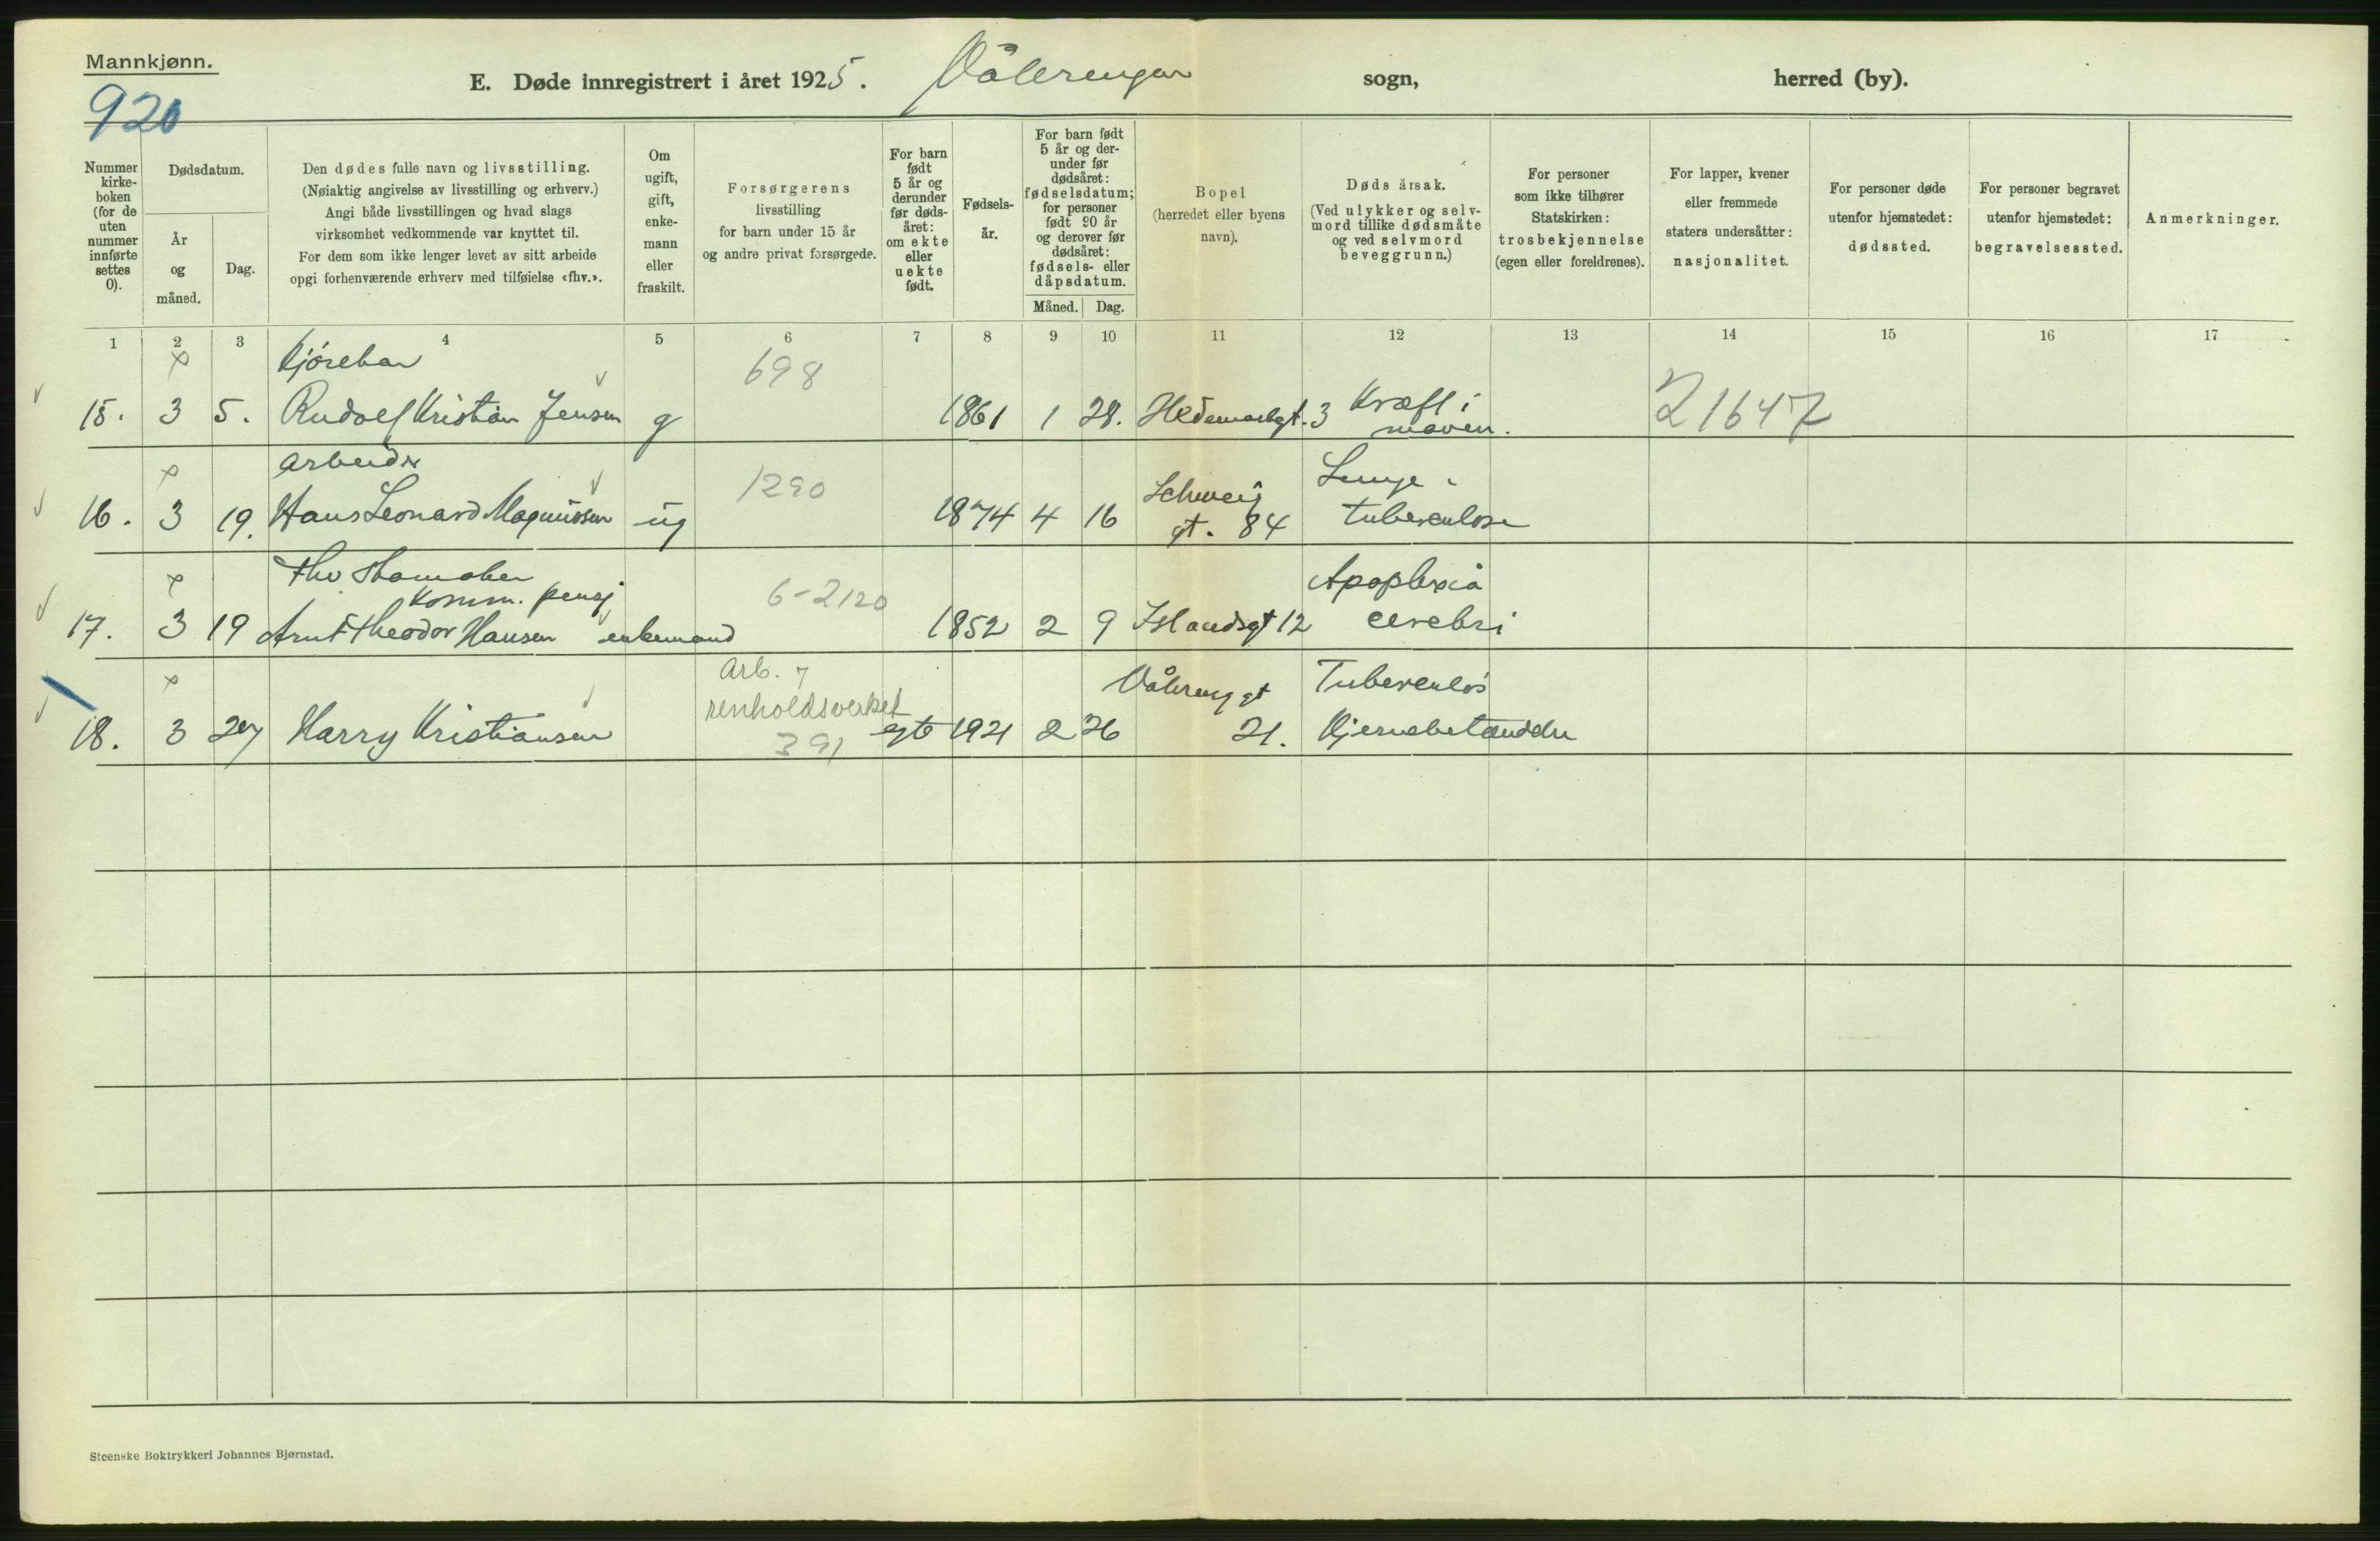 Mannkjønn.
920
E. Døde innregistrert i året 1925. Vålerengen sogn, herred (by).
Nummer kirke- boken (for de uten nummer innførte settes 0).
Dødsdatum.
År og måned.
Dag.
Den dødes fulle navn og livsstilling.
(Nøiaktig angivelse av livsstilling og erhverv.)
Angi både livsstillingen og hvad slags
virksomhet vedkommende var knyttet til.
For dem som ikke lenger levet av sitt arbeide
opgi forhenværende erhverv med tilføielse «fhv.».
Om ugift, gift, enke- mann eller fraskilt.
Forsørgerens
livsstilling
for barn under 15 år
og andre privat forsørgede.
For barn født 5 år og derunder før døds- året: om ekte eller uekte født.
Fødsels- år.
For barn født 5 år og der- under før dødsåret: fødselsdatum; for personer født 90 år og derover før dødsåret: fødsels- eller dåpsdatum.
Måned. Dag.
Bopel
(herredet eller byens
navn).
Dødsårsak.
(Ved ulykker og selv-
mord tillike dødsmåte
og ved selvmord
beveggrunn.)
For personer
som ikke tilhører
Statskirken:
trosbekjennelse
(egen eller foreldrenes).
For lapper, kvener
eller fremmede
staters undersåtter:
nasjonalitet.
For personer døde
utenfor hjemstedet:
dødssted.
For personer begravet
utenfor hjemstedet:
begravelsessted.
Anmerkninger.
1 2 3 4 5 6 7 8 9 10 11 12 13 14 15 16 17
698
15. 3 5. Rudolf Kristian Jensen g 1861 1 28. Hedemarkgt. 3 Kræft i
maven.
21647
Arbeider
1290
16. 3 19. Hans Leonard Magnussen ug 1874 4 16 Schweig
gt. 84
Lunge-
tuberkulose
fhv
komm. pensj
6-2120
17. 3 19 Arnt Theodor Hansen enkemand 1852 2 9 Islandsgt 12 Apoplexia
cerebri
Arb.
renholdsverket
391
18. 3 27 Harry Kristiansen egte 1921 2 26 Vålereng gt
21.
Tuberkuløs
Hjernebetændelse
Steenske Boktrykkeri Johannes Bjørnstad.